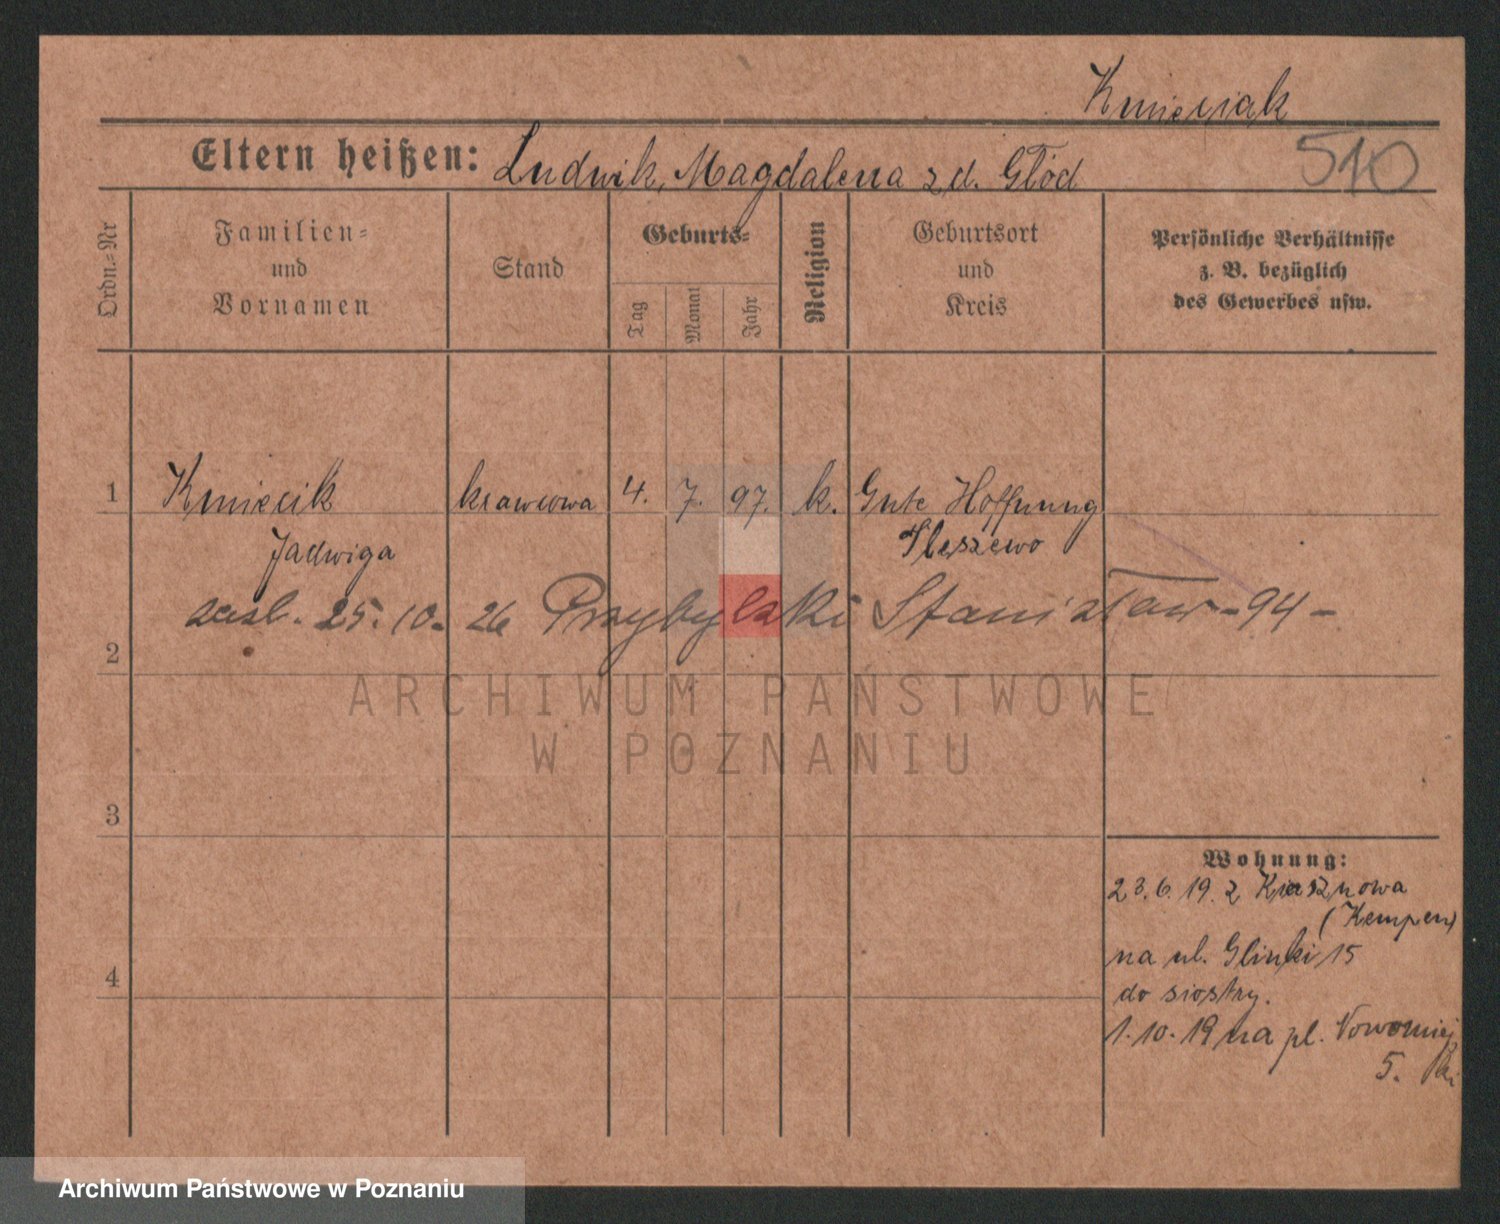 Kmieciak
Eltern heißen: Ludwik, Magdalena z d. Głód
510
Ordn.-Nr
Familien-
und
Vornamen
Stand
Geburts-
Tag
Monat
Jahr
Religion
Geburtsort
und
Kreis
Persönliche Verhältnisse
z. B. bezüglich
des Gewerbes usw.
1 Kmiecik krawcowa 4. 7. 97. k. Gute Hoffnung
Jadwiga Pleszewo
zaśl. 25. 10. 26 Przybylski Stanisław -94-
2
ARCHIWUM PAŃSTWOWE
W POZNANIU
3
Wohnung:
23.6.19. z
(Kempen)
na ul. Glinki 15
4
do siostry.
1.10.19 na pl. Nowomiej
5. ki
Archiwum Państwowe w Poznaniu